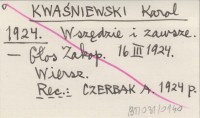 KWAŚNIEWSKI Karol
1924. Wszędzie i zawsze.
— Głos Zakop. 16 III 1924.
Wiersz.
Rec.: CZERBAK A. 1924 p.